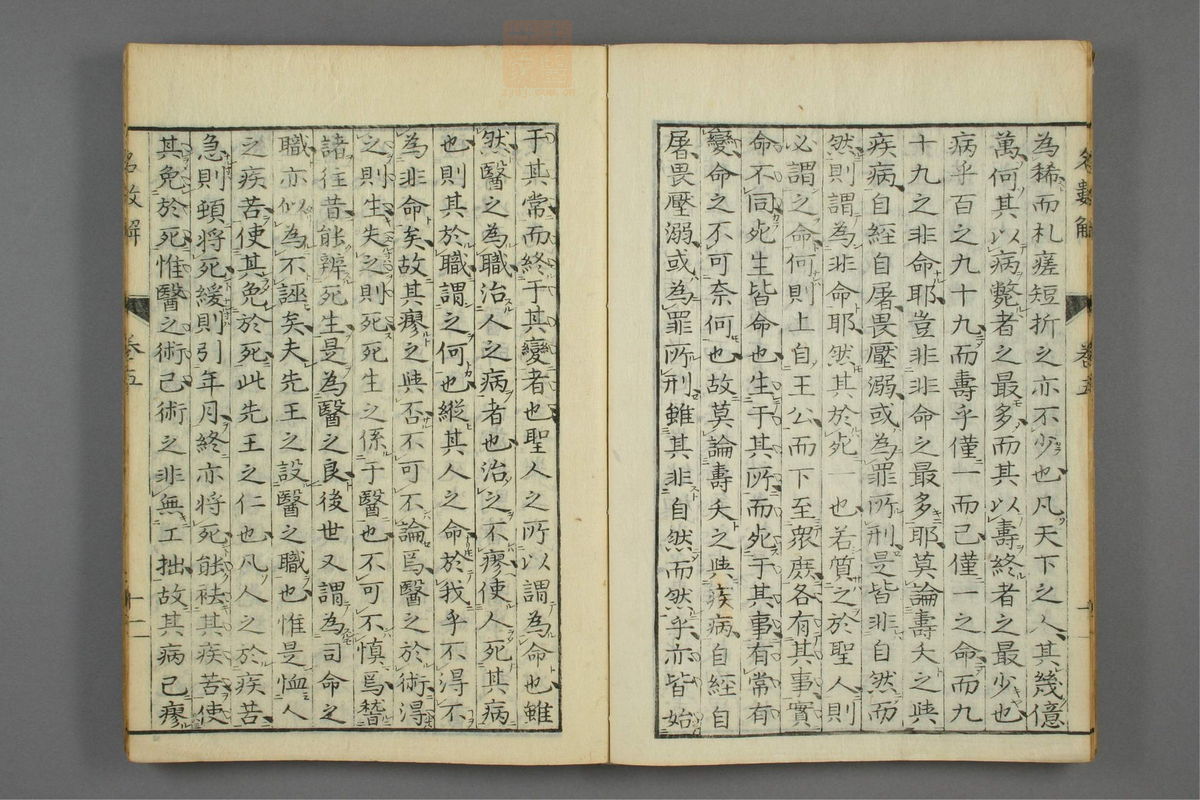 為稀而札瘥短折之亦不少也凡天下之人其幾億
萬何其以病斃者之最多而其以壽終者之最少也
病乎百之九十九而壽乎僅一而已僅一之命而九
十九之非命耶豈非非命之最多耶莫論壽夭之與
疾病自經自屠畏壓溺或為罪所刑是皆非自然而
然則謂為非命耶然其於死一也若質之於聖人則
必謂之命何則上自王公而下至眾庶各有其事實
命不同死生皆命也生于其所而死于其事有常有
變命之不可奈何也故莫論壽夭之與疾病自經自
屠畏壓溺或為罪所刑雖其非自然而然乎亦皆始
于其常而終于其變者也聖人之所以謂為命也雖
然醫之為職治人之病者也治之不瘳使人死其病
也則其於職謂之何也縱其人之命於我乎不得不
為非命矣故其瘳之與否不可不論焉醫之於術得
之則生失之則死死生之係于醫也不可不慎焉嘗
諸往昔能辨死生是為醫之良後世又謂為司命之
職亦似為不誣矣夫先王之設醫之職也惟是恤人
之疾苦使其免於死此先王之仁也凡人之於疾苦
急則頓將死緩則引年月終亦將死能祛其疾苦使
其免於死惟醫之術已術之非無工拙故其病已瘳
名數解
卷五
十一